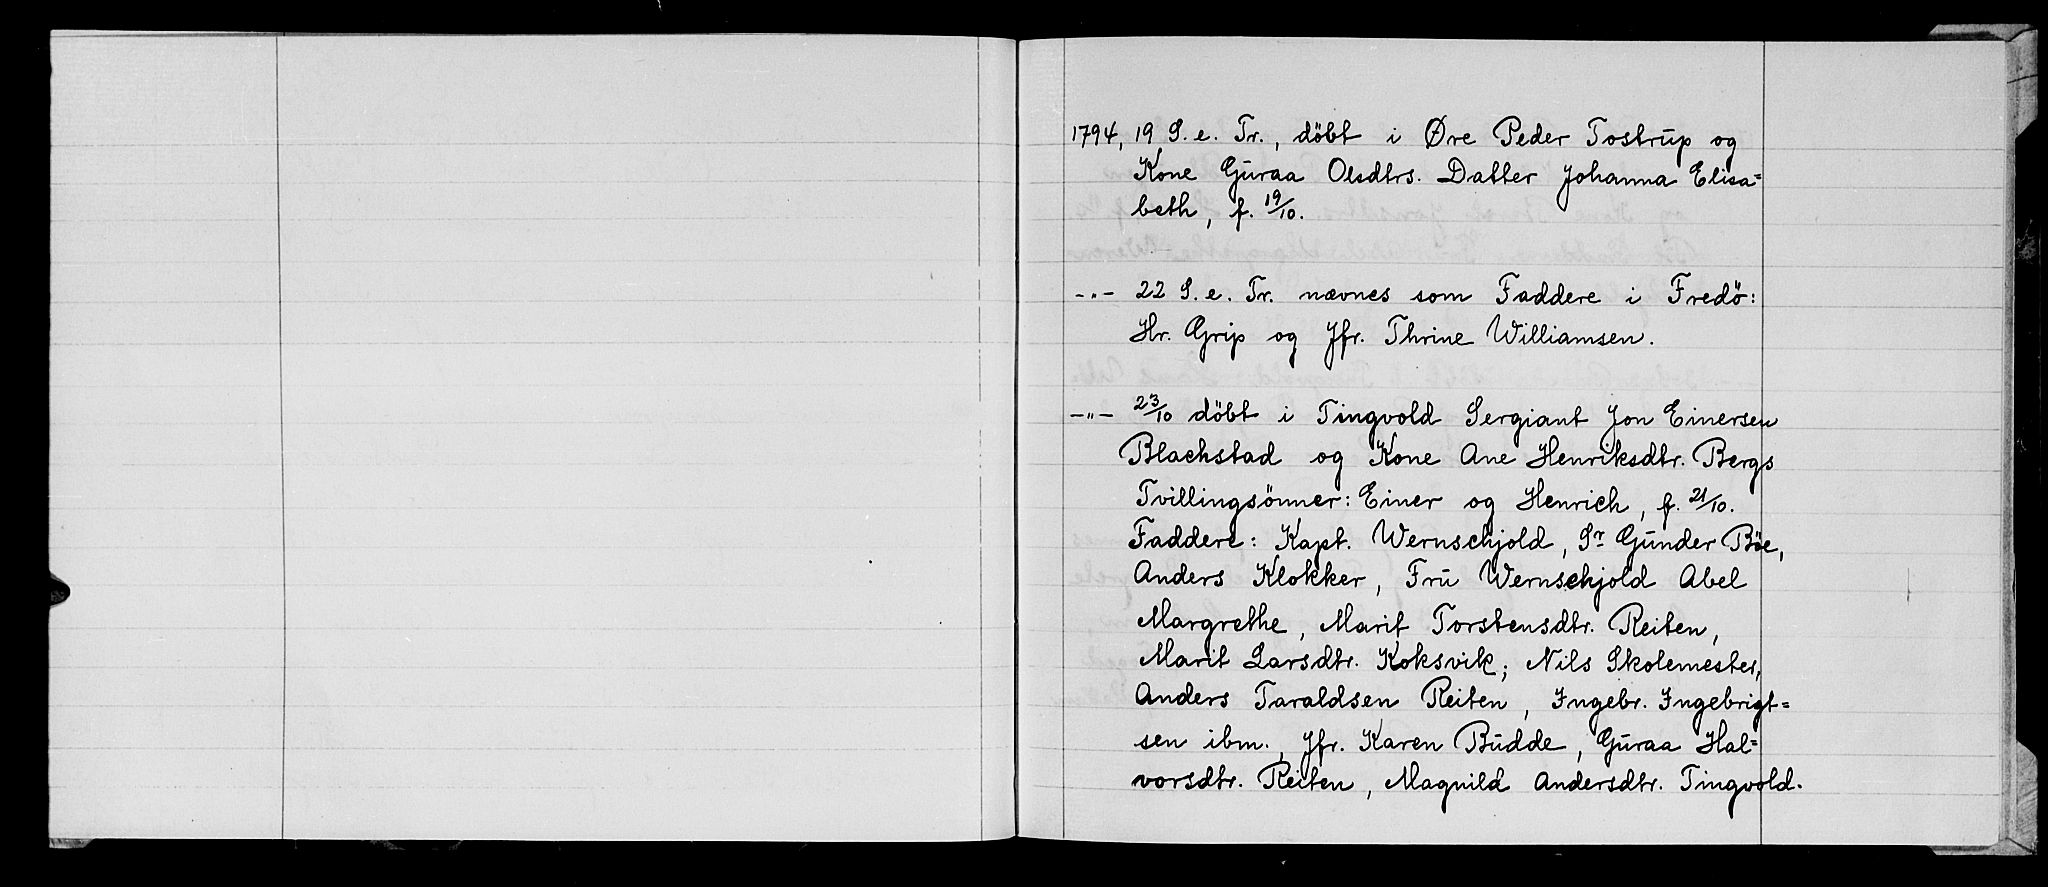 1794, 19 S. e. Tr., döbt i Øre Peder Tostrup og
Kone Guraa Olsdtrs. Datter Johanna Elisa=
beth, f. 19/10.
-"- 22 S. e. Tr. nævnes som Faddere i Fredö:
Hr. Grip og Jfr. Thrine Williamsen.
-"- 23/10 döbt i Tingvold Sergiant Jon Einersen
Blachstad og Kone Ane Henriksdtr. Bergs
Tvillingsönner: Einer og Henrich, f. 21/10.
Faddere: Kapt. Wernschjold, Sr Gunder Böe,
Anders Klokker, Fru Wernschjold Abel
Margrethe, Marit Torstensdtr. Reiten,
Marit Larsdtr. Koksvik; Nils Skolemester,
Anders Taraldsen Reiten, Ingebr. Ingebrigt=
sen ibm., Jfr. Karen Budde, Guraa Hal=
vorsdtr. Reiten, Magnild Andersdtr. Tingvold.